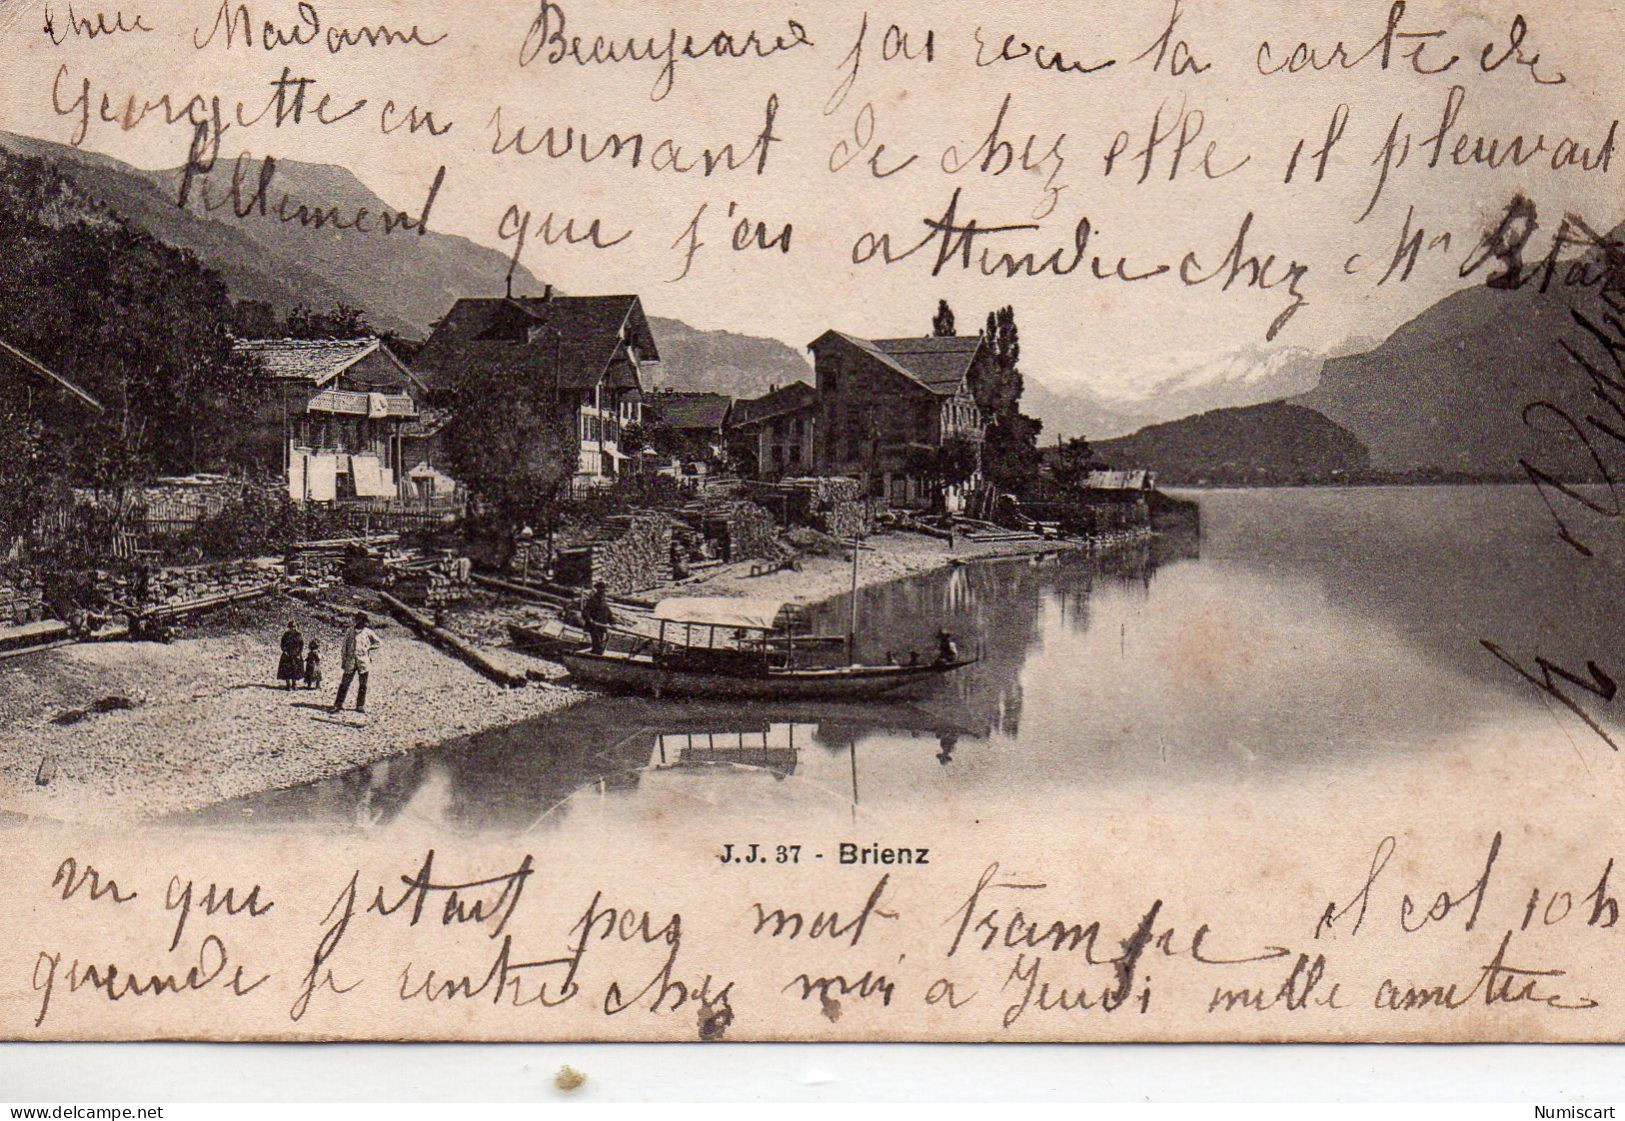 Chere Madame Beaujeard j'ai recu la carte de
Georgette en revenant de chez elle il pleuvait
tellement que j'ai attendue chez Mr
J.J. 37 - Brienz
vu que jetait pas mal trampe il est 10h
quende je rentre chez moi a Jeudi mille amitiers
www.delcampe.net
Numiscart